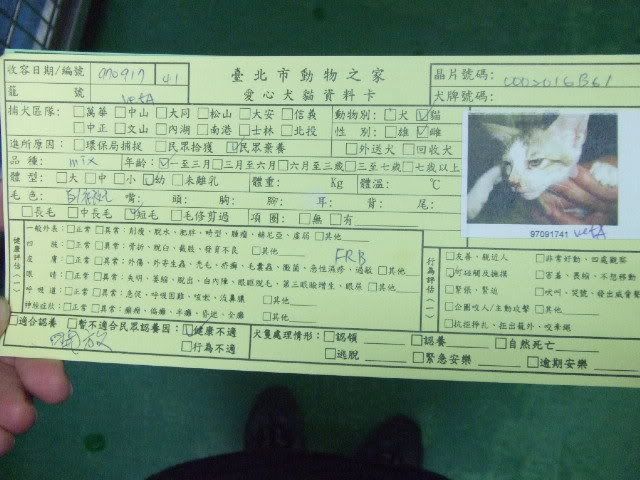 收容日期/編號 970917 41 臺北市動物之家 晶片號碼:
籠號 vetA 愛心犬貓資料卡 犬牌號碼:
捕犬區隊: □萬華 □中山 □大同 □松山 □大安 □信義 動物別: □犬 ☑貓
□中正 □文山 □內湖 □南港 □士林 □北投 性別: □雄 ☑雌
進所原因: □環保局捕捉 □民眾拾獲 ☑民眾棄養 □外送犬 □回收犬
品種: mix 年齡: ☑一至三月 □三月至六月 □六月至三歲 □三至七歲 □七歲以上
體型: □大 □中 □小 ☑幼 □未離乳 體重: Kg 體溫: ℃
毛色: 嘴: 頭: 胸: 腳: 耳: 背: 尾:
□長毛 □中長毛 ☑短毛 □毛修剪過 項圈: □無 □有
97091741 vetA
健康評估(一)
一般外表: □正常 □異常: 削瘦、脫水、肥胖、畸型、腫瘤、赫尼亞、虛弱
四肢: □正常 □異常: 骨折、脫臼、截肢、發育不良 □其他
皮膚: □正常 □異常: 外傷、外寄生蟲、禿毛、疥癬、毛囊蟲、黴菌、急性濕疹、過敏 □其他
FRB
眼睛: □正常 □異常: 失明、萎縮、脫出、白內障、眼瞼脫毛、第三眼瞼增生、眼屎 □其他
呼吸道: □正常 □異常: 急促、呼吸困難、咳嗽、流鼻膿 □其他
神經症狀: □正常 □異常: 癲癇、偏癱、半癱、昏迷、全癱 □其他
行為評估(一)
□友善、親近人 □非常好動、四處觀察
☑可碰觸及撫摸 □害羞、畏縮、不想移動
□緊張、緊迫 □吠叫、哭號、發出威脅聲
□企圖咬人/主動攻擊 □其他
□抗拒掙扎、拒出籠外、咬牽繩
□適合認養 □暫不適合民眾認養因: ☑健康不適 犬隻處理情形: □認領 □認養 □自然死亡
□行為不適 □逃脫 □緊急安樂 □逾期安樂